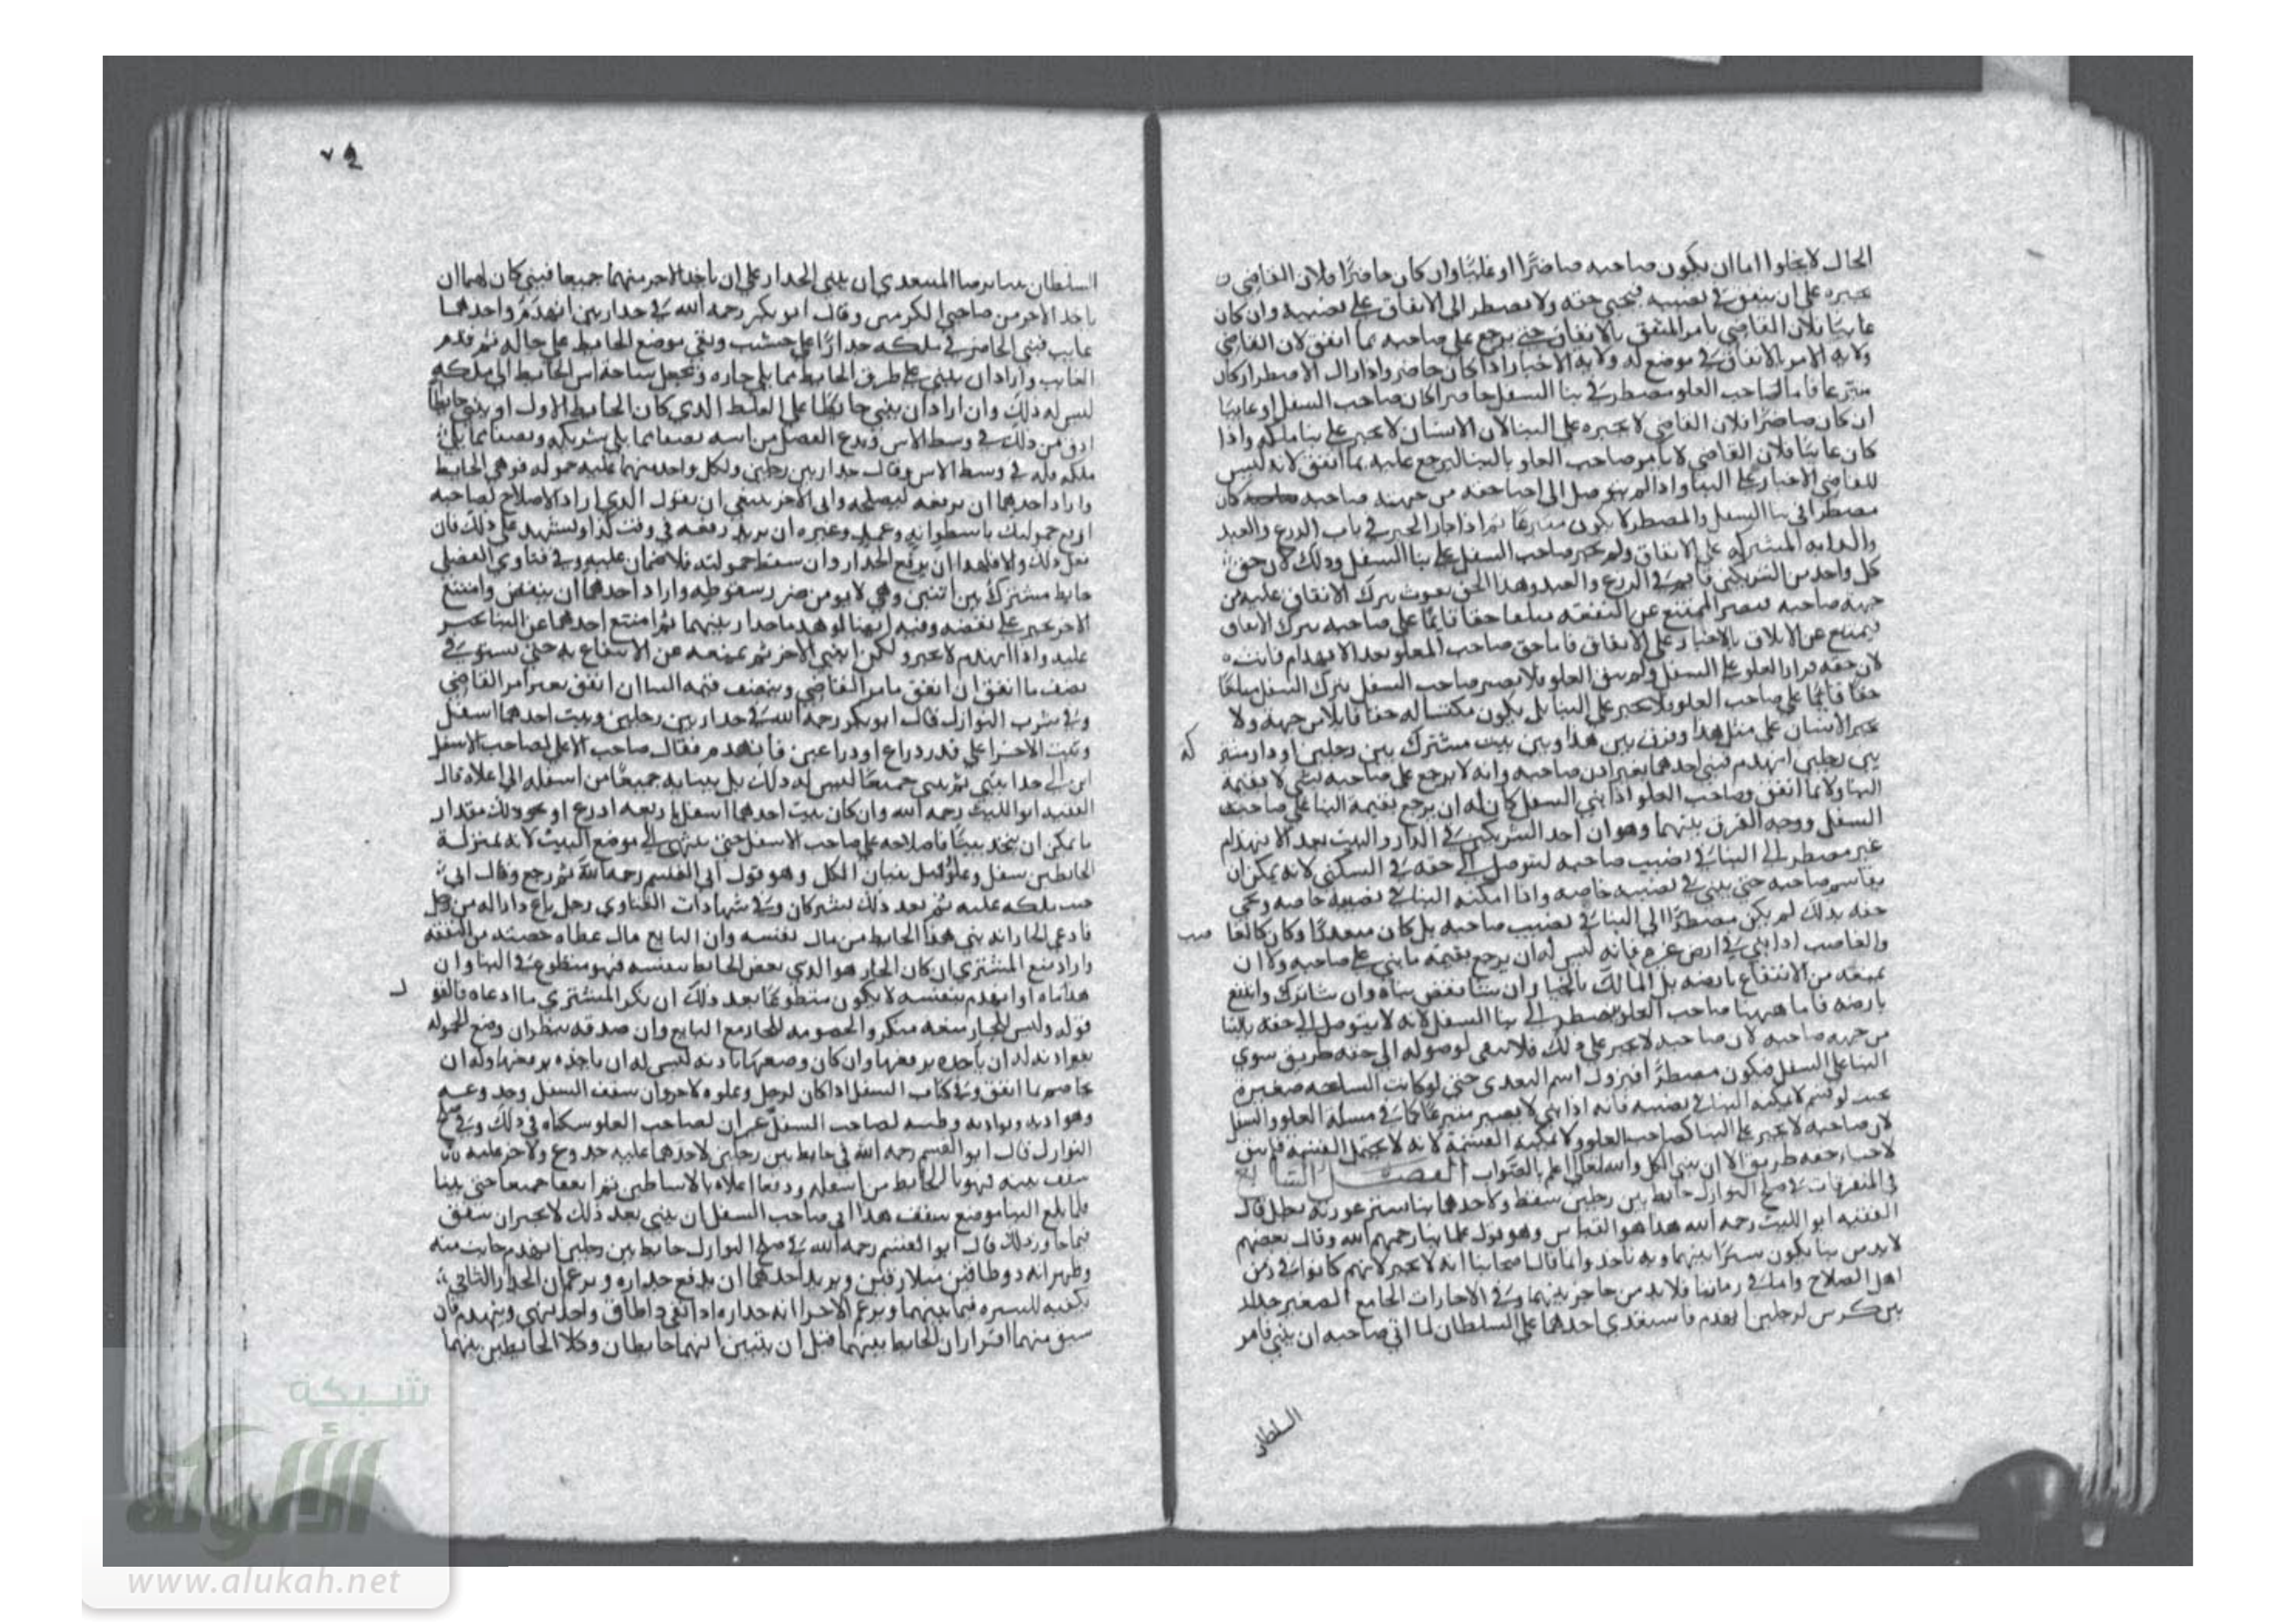 الحال لا يخلوا اما ان يكون صاحبه حاضرًا او غايبًا وان كان حاضرًا فلان القاضي
يجبره على ان ينفق في نصيبه فيحيي حقه ولا يضطر الى الانفاق على نصيبه وان كان
غايبًا فلان القاضي يامر المنفق بالانفاق حتى يرجع على صاحبه بما انفق لان القاضي
ولاية الامر بالانفاق في موضع له ولاية الاجبار اذا كان حاضر واذا زال الاضطرار كان
متبرعا فاما لصاحب العلو مضطر في بنا السفل حاضرا كان صاحب السفل او غايبًا
ان كان حاضرًا فلان القاضي لا يجبره على البنا لان الانسان لا يجبر على بنا ملكه واذا
كان غايبًا فلان القاضي لا يامر صاحب العلو بالبنا ليرجع عليه بما انفق لانه ليس
للقاضي الاجبار على البنا واذا لم يتوصل الى احيا حقه من جهة صاحبه كان
مضطرا في بنا السفل والمضطر لا يكون متبرعًا ثم اذا جاز الجبر في باب الزرع والعبد
والدابة المشتركة على الانفاق ولم يجبر صاحب السفل على بنا السفل وذلك لان حق
كل واحد من الشريكين قايم في الزرع والعبد وهذا الحق يفوت بترك الانفاق عليه من
جهة صاحبه فيصير الممتنع عن النفقة متلفا حقا قايمًا على صاحبه بترك الانفاق
فيمنع عن الاتلاف بالاجبار على الانفاق فاما حق صاحب العلو بعد الانهدام فايت
لان حقه قرار العلو على السفل ولم يبق العلو فلا يصير صاحب السفل بترك السفل متلفًا
حقًا قايمًا على صاحب العلو فلا يجبر على البنا بل يكون مكتسبا له حقا قابلا من جهة ولا
يجبر الانسان على مثل هذا وفرق بين هذا وبين بيت مشترك بين رجلين او دار مشتر
كة
بين رجلين انهدم فبنى احدهما بغير اذن صاحبه وانه لا يرجع على صاحبه بشي لا بقيمة
البنا ولا بما انفق وصاحب العلو اذا بني السفل كان له ان يرجع بقيمة البنا على صاحب
السفل ووجه الفرق بينهما وهو ان احد الشريكين في الدار والبيت بعد الانهدام
غير مضطر الى البنا في نصيب صاحبه ليتوصل الى حقه في السكنى لانه يمكن ان
يقاسم صاحبه حتى يبني في نصيبه خاصة واذا امكنه البنا في نصيبه خاصة ويحيي
حقه بذلك لم يكن مضطرًا الى البنا في نصيب صاحبه بل كان متعديًا وكان كالغا
صب
والغاصب اذا بني في ارض غيره فانه ليس له ان يرجع بقيمة ما بني على صاحبه ولا ان
يمنعه من الانتفاع بارضه بل المالك بالخيار ان شا نقض بناه وان شا ترك وانتفع
بارضه فاما ههنا صاحب العلو مضطر الى بنا السفل لانه لا يتوصل الى حقه بالبنا
من جهة صاحبه لان صاحبه لا يجبر على ذلك فلا يبقى لوصوله الى حقه طريق سوى
البنا على السفل فيكون مضطرًا فيزول اسم التعدي حتى لو كانت الساحة صغيرة
بحيث لو قسم لا يمكنه البنا في نصيبه فانه اذا بني لا يصير متبرعًا كما في مسلة العلو والسفل
لان صاحبه لا يجبر على البنا كصاحب العلو ولا يمكنه القسمة لانه لا يحتمل القسمة فلم يبق
لاحيا حقه طريق الا ان يبني الكل والله تعالى اعلم بالصواب الفصل
في المتفرقات في صلح النوازل حايط بين رجلين سقط ولاحدهما بنات تستر عورته بطل قال
الفقيه ابو الليث رحمه الله هذا هو القياس وهو قول علماينا رحمهم الله وقال بعضهم
لا بد من بنا يكون سترًا بينهما وبه ناخذ وانما قال اصحابنا انه لا يجبر لانهم كانوا في زمن
اهل الصلاح واما في زماننا فلا بد من حاجز بينهما وفي الاجارات الجامع الصغير جدار
بين كرمين لرجلين انهدم فاستعدى احدهما على السلطان لما ابى صاحبه ان يبني فامر
السلطان
٧٩
السلطان بنا برضا المستعدي ان يبني الجدار على ان ياخذ الاجر منهما جميعا فبنى كان لهما ان
ياخذ الاجر من صاحبي الكرمين وقال ابو بكر رحمه الله في جدار بين انهدم واحدهما
غايب فبنى الحاضر في ملكه جدارًا على خشب وبقي موضع الحايط على حاله ثم قدم
الغايب واراد ان يبني على طرف الحايط مما يلي جاره ويجعل ساحة اس الحايط الى ملكه
ليس له ذلك وان اراد ان يبني حايطًا على الغلظ الذي كان الحايط الاول او يبني حايطًا
ادق من ذلك في وسط الاس ويدع الفضل من اسه نصفا مما يلي شريكه ونصفا مما يلي
ملكه فله في وسط الاس وقال جدار بين رجلين ولكل واحد منهما عليه حمولة فوهى الحايط
واراد احدهما ان يرفعه ليصلحه وابى الاخر ينبغي ان يقول الذي اراد الاصلاح لصاحبه
ارفع حمولتك باسطوانة وعمد وغيره ان يريد رفعه في وقت كذا ويشهد على ذلك فان
فعل ذلك والا فلهذا ان يرفع الجدار وان سقط حمولته فلا ضمان عليه وفي فتاوى الفضلي
حايط مشترك بين اثنين وهي لا يومن ضرر سقوطه واراد احدهما ان ينقض وامتنع
الاخر يجبر على نقضه وفيه ايضا لو هدما جدارا بينهما ثم امتنع احدهما عن البنا يجبر
عليه واذا انهدم لا يجبر ولكن ابني الاخر ثم يمنعه عن الانتفاع به حتى يستوفي
نصف ما انفق ان انفق بامر القاضي وبنصف قيمة البنا ان انفق بغير امر القاضي
وفي شرب النوازل قال ابو بكر رحمه الله في جدار بين رجلين وبيت احدهما اسفل
وبيت الاخر اعلى قدر ذراع او ذراعين فانهدم فقال صاحب الاعلى لصاحب الاسفل
ابن الى حدا بيتي ثم نبني جميعًا ليس له ذلك بل يبنيانه جميعًا من اسفله الى اعلاه قال
الفقيه ابو الليث رحمه الله وان كان بيت احدهما اسفل باربعة ادرع او نحو ذلك مقدار
ما يمكن ان يتخذ بيتًا فاصلاحه على صاحب الاسفل حتى ينتهي الى موضع البيت لانه بمنزلة
الحايطين سفل وعلو وقيل يبنيان الكل وهو قول ابي القسم رحمه الله ثم رجع وقال الى
حيث ملكه عليه ثم بعد ذلك يشتركان وفي شهادات الفتاوي رجل باع دارا له من رجل
فادعى الجار انه بني هذا الحايط من مال نفسه وان البايع مال عطاه حصته من النفقة
واراد منع المشتري ان كان الجار هو الذي نقض الحايط بنفسه فهو متطوع في البنا وان
هدماه او انهدم بنفسه لا يكون متطوعًا بعد ذلك ان نكر المشتري ما ادعاه فالقو
ل
قوله وليس للجار منعه منكر والخصومة للجار مع البايع وان صدقه ينظر ان وضع الحمولة
بغير اذنه له ان ياخذه برفعها وان كان وضعها باذنه ليس له ان ياخذه برفعها وله ان
يخاصم بما انفق وفي كتاب السفل اذا كان لرجل وعلوه لاخر وان سقف السفل وجذوعه
وهواديه وبواريه وطينه لصاحب السفل غير ان لصاحب العلو سكناه في ذلك وفي صلح
النوازل قال ابو القسم رحمه الله في حايط بين رجلين لاحدهما عليه جذوع ولاخر عليه
سقف بيته فهدما الحايط من اسفله ورفعا اعلاه بالاساطين ثم اتفقا جميعا حتى بنيا
فلما بلغ البنا موضع سقف هذا ابى صاحب السفل ان يبني بعد ذلك لا يجبر ان ينفق
فيما جاوز ذلك قال ابو القسم رحمه الله في صلح النوازل حايط بين رجلين انهدم جانب منه
وظهر انه ذو طاقين متلازقين ويريد احدهما ان يرفع جداره ويزعم ان الجدار الباقي
يكفيه للسترة فيما بينهما ويزعم الاخر انه جداره اذا بقي ذا طاق واحد يهي وينهدم فان
سبق منهما اقرار ان الحايط بينهما قبل ان يتبين انهما حايطان وكلا الحايطين بينهما
شبكة
الألوكة
www.alukah.net